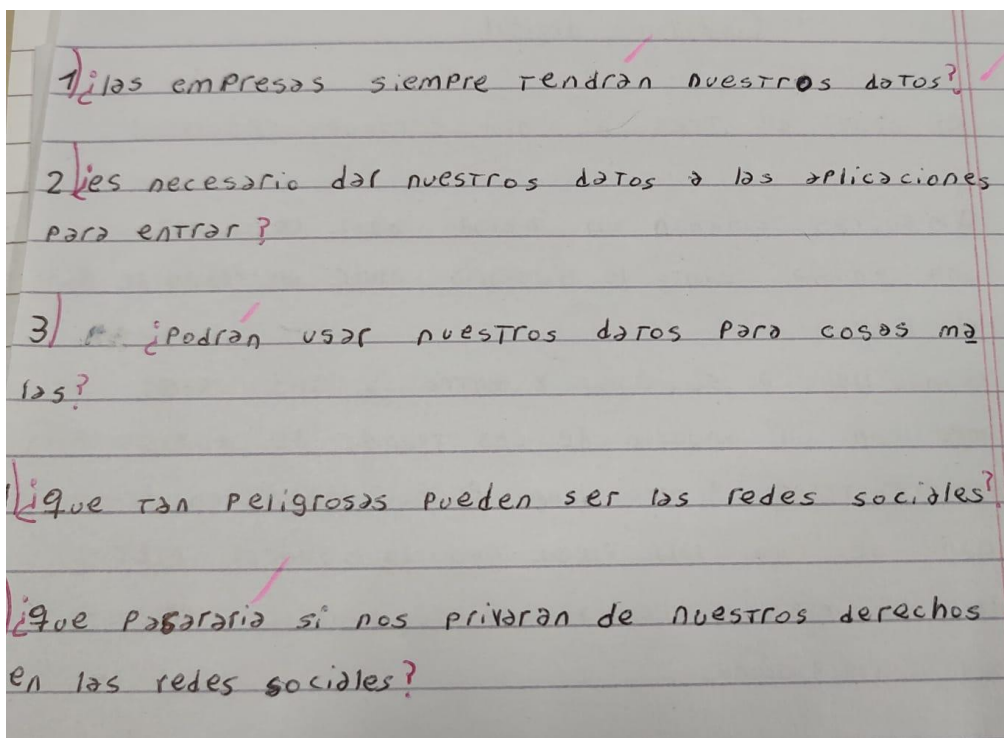 1) ¿las empresas siempre tendrán nuestros datos?
2) ¿es necesario dar nuestros datos a las aplicaciones
para entrar?
3) ¿Podrán usar nuestros datos para cosas ma
las?
) ¿que tan peligrosas pueden ser las redes sociales?
) ¿que pasararia si nos privarán de nuestros derechos
en las redes sociales?